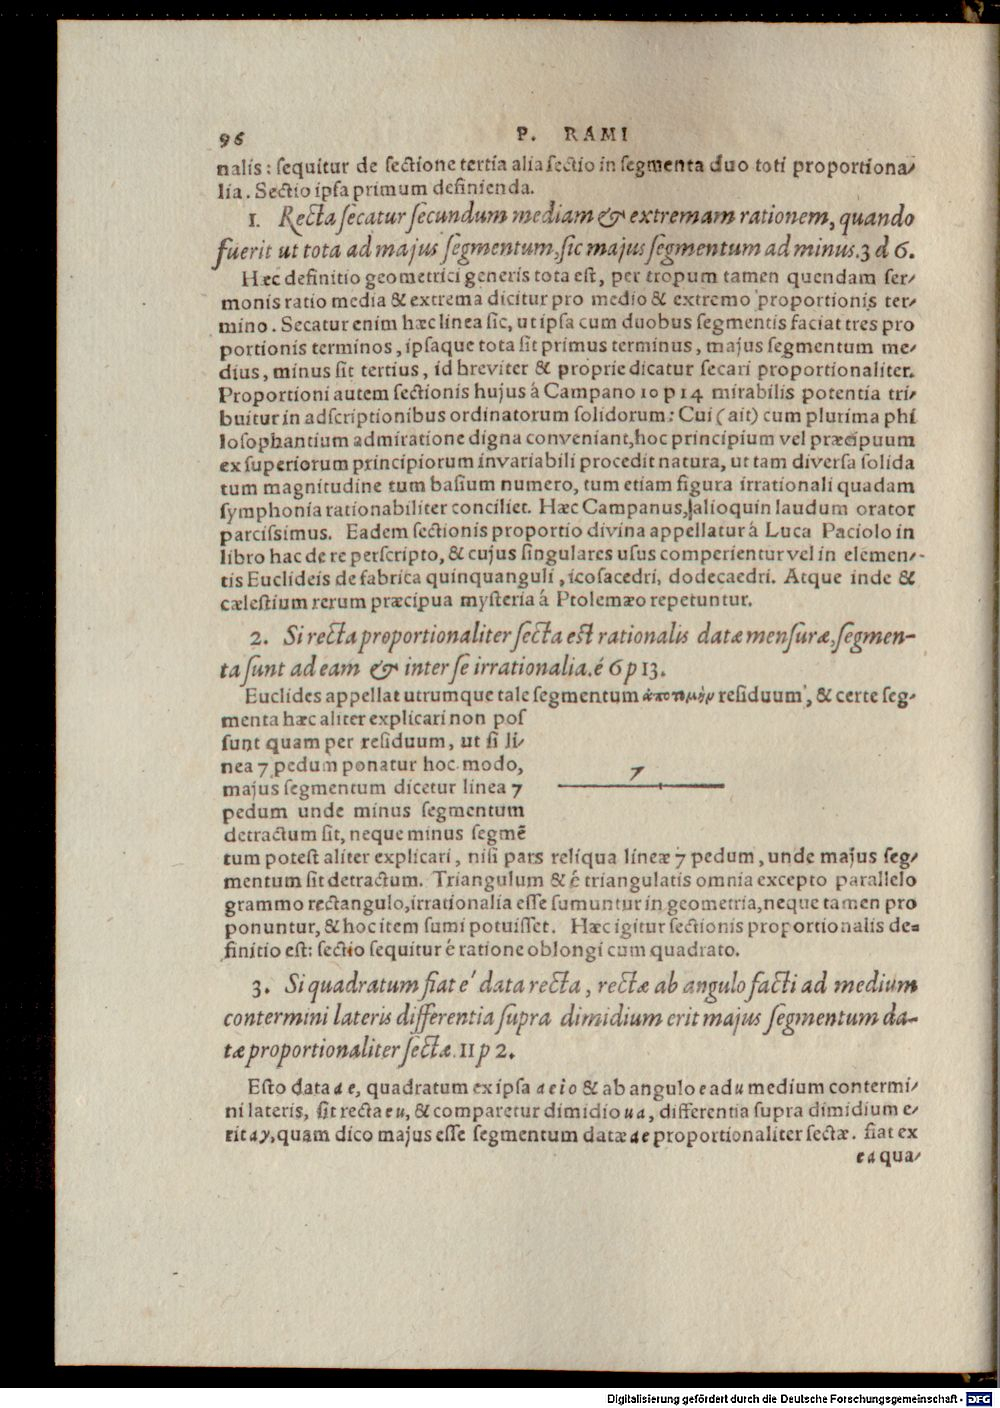 96 P. RAMI
nalis: sequitur de sectione tertia alia sectio in segmenta duo toti proportiona-
lia. Sectio ipsa primum definienda.
1. Recta secatur secundum mediam & extremam rationem, quando
fuerit ut tota ad majus segmentum, sic majus segmentum ad minus. 3 d 6.
Hæc definitio geometrici generis tota est, per tropum tamen quendam ser-
monis ratio media & extrema dicitur pro medio & extremo proportionis ter-
mino. Secatur enim hæc linea sic, ut ipsa cum duobus segmentis faciat tres pro
portionis terminos, ipsaque tota sit primus terminus, majus segmentum me-
dius, minus sit tertius, id breviter & proprie dicatur secari proportionaliter.
Proportioni autem sectionis hujus á Campano 10 p 14 mirabilis potentia tri-
buitur in adscriptionibus ordinatorum solidorum: Cui (ait) cum plurima phi
losophantium admiratione digna conveniant, hoc principium vel præcipuum
ex superiorum principiorum invariabili procedit natura, ut tam diversa solida
tum magnitudine tum basium numero, tum etiam figura irrationali quadam
symphonia rationabiliter conciliet. Hæc Campanus, alioquin laudum orator
parcissimus. Eadem sectionis proportio divina appellatur á Luca Paciolo in
libro hac de re perscripto, & cujus singulares usus comperientur vel in elemen-
tis Euclideis de fabrica quinquanguli, icosaedri, dodecaedri. Atque inde &
cælestium rerum præcipua mysteria á Ptolemæo repetuntur.
2. Si recta proportionaliter secta est rationalis datæ mensuræ, segmen-
ta sunt ad eam & inter se irrationalia. é 6 p 13.
Euclides appellat utrumque tale segmentum ἀποτομὴν residuum, & certe seg-
menta hæc aliter explicari non pos
sunt quam per residuum, ut si li-
nea 7 pedum ponatur hoc modo,
majus segmentum dicetur linea 7
pedum unde minus segmentum
detractum sit, neque minus segmē
7
tum potest aliter explicari, nisi pars reliqua lineæ 7 pedum, unde majus seg-
mentum sit detractum. Triangulum & é triangulatis omnia excepto parallelo
grammo rectangulo, irrationalia esse sumuntur in geometria, neque tamen pro
ponuntur, & hoc item sumi potuisset. Hæc igitur sectionis proportionalis de-
finitio est: sectio sequitur é ratione oblongi cum quadrato.
3. Si quadratum fiat e' data recta, rectæ ab angulo facti ad medium
contermini lateris differentia supra dimidium erit majus segmentum da-
tæ proportionaliter sectæ. 11 p 2.
Esto data a e, quadratum ex ipsa a e i o & ab angulo e ad u medium contermi-
ni lateris, sit recta e u, & comparetur dimidio u a, differentia supra dimidium e-
rit a y, quam dico majus esse segmentum datæ a e proportionaliter sectæ. fiat ex
e a qua-
Digitalisierung gefördert durch die Deutsche Forschungsgemeinschaft - DFG